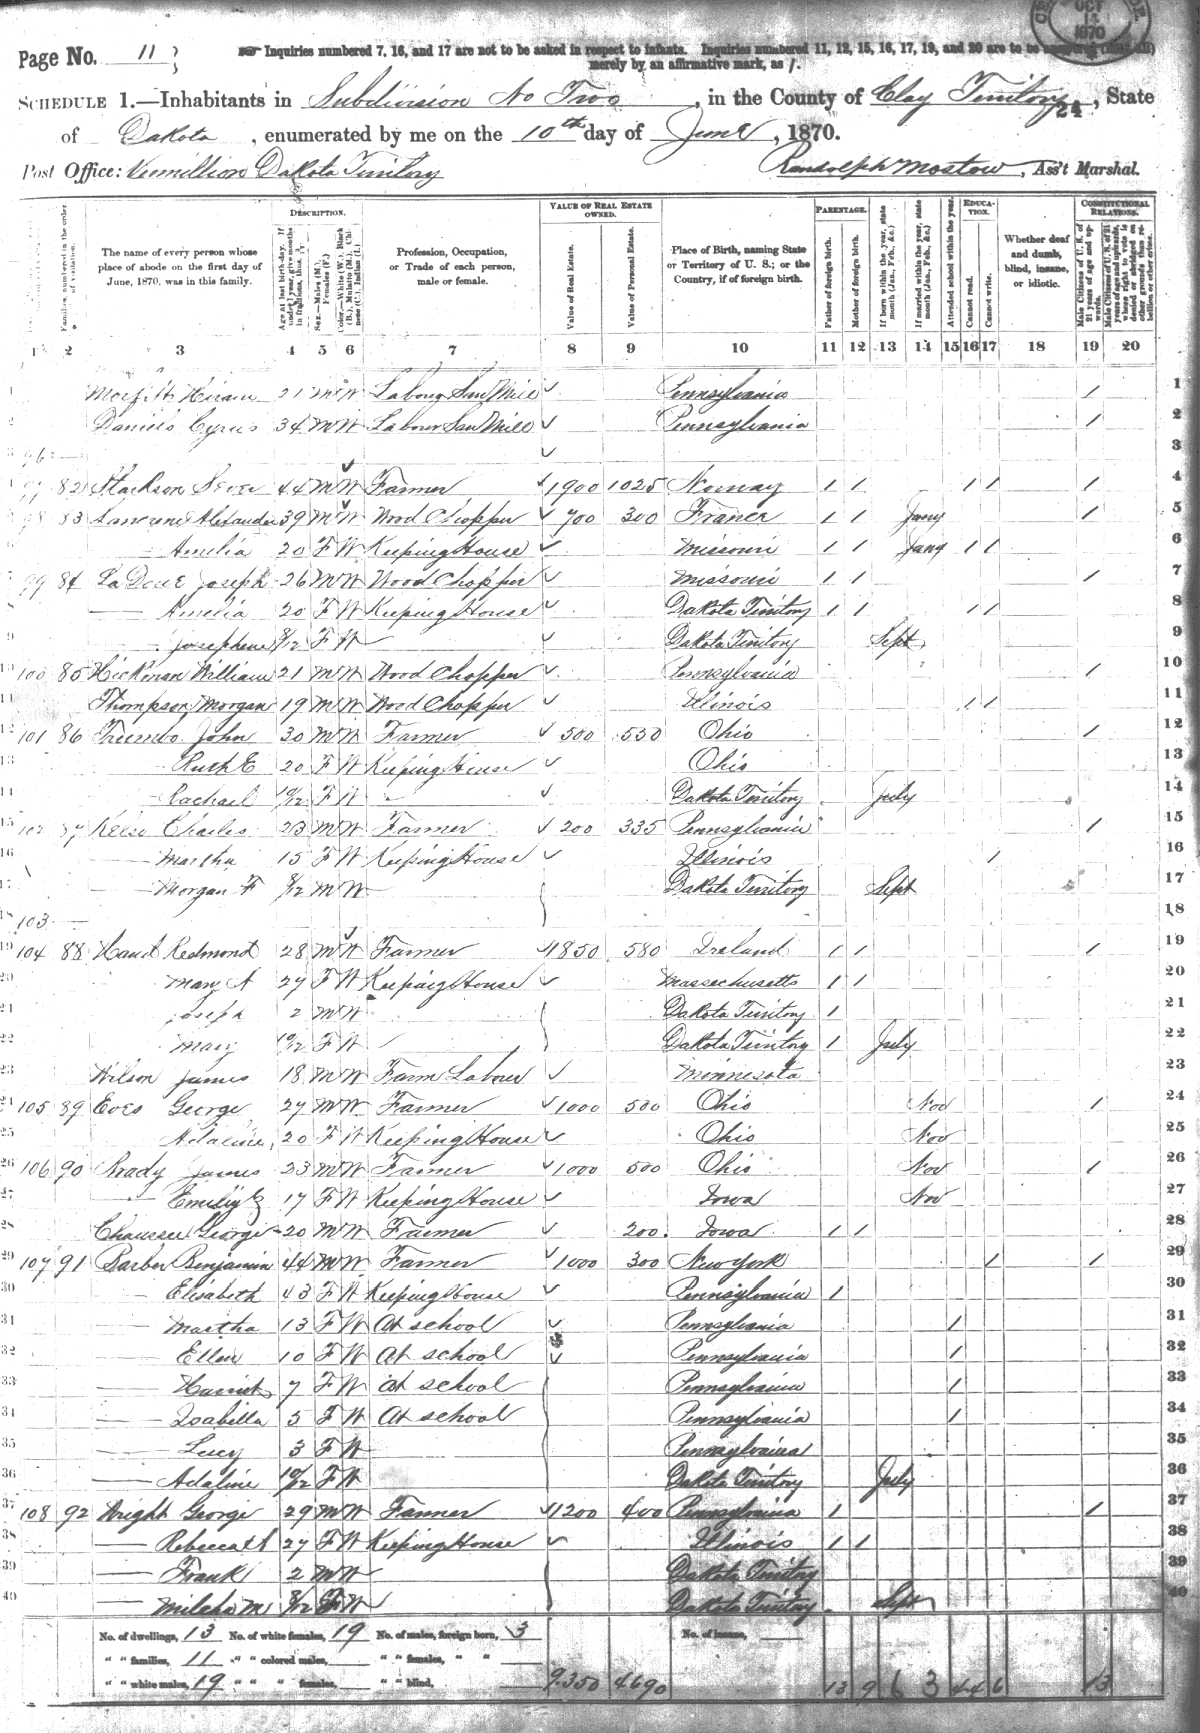 Page No. 11
Inquiries numbered 7, 16, and 17 are not to be asked in respect to infants. Inquiries numbered 11, 12, 15, 16, 17, 19, and 20 are to be
merely by an affirmative mark, as /.
OCT
1870
SCHEDULE 1.—Inhabitants in Subdivision No Two, in the County of Clay Territory, State
24
of Dakota, enumerated by me on the 10th day of June, 1870.
Post Office: Vermillion Dakota Territory Randolph Mostow, Ass't Marshal.
The name of every person whose place of abode on the first day of June, 1870, was in this family.
DESCRIPTION.
Profession, Occupation, or Trade of each person, male or female.
VALUE OF REAL ESTATE OWNED.
Value of Real Estate.
Value of Personal Estate.
Place of Birth, naming State or Territory of U. S.; or the Country, if of foreign birth.
PARENTAGE.
Father of foreign birth.
Mother of foreign birth.
If born within the year, state month (Jan., Feb., &c.)
If married within the year, state month (Jan., Feb., &c.)
EDUCATION.
Attended school within the year.
Cannot read.
Cannot write.
Whether deaf and dumb, blind, insane, or idiotic.
CONSTITUTIONAL RELATIONS.
1 2 3 4 5 6 7 8 9 10 11 12 13 14 15 16 17 18 19 20
1 Hiram 21 M W Labour Saw Mill Pennsylvania / 1
2 Daniels Cyrus 34 M W Labour Saw Mill Pennsylvania / 2
3 96 — 3
4 97 82 Sever 44 M W Farmer 1900 1025 Norway / / / / / 4
5 98 83 Alexander 39 M W Wood Chopper 700 300 France / / Jany / 5
6 — Amelia 20 F W Keeping House Missouri / / Jany / / 6
7 99 84 Joseph 26 M W Wood Chopper Missouri / / / 7
8 — Amelia 20 F W Keeping House Dakota Territory / / / / 8
9 — Josephene 8/12 F W — Dakota Territory Sept 9
10 100 85 Hickman William 21 M W Wood Chopper Pennsylvania / 10
11 Thompson Morgan 19 M W Wood Chopper Illinois / / 11
12 101 86 Trumbo John 30 M W Farmer 500 550 Ohio / 12
13 — Ruth E 20 F W Keeping House Ohio 13
14 — Rachael 10/12 F W - Dakota Territory July 14
15 102 87 Kelso Charles 23 M W Farmer 200 335 Pennsylvania / 15
16 — Martha 15 F W Keeping House Illinois / 16
17 — Morgan F 8/12 M W — Dakota Territory Sept 17
18 103 — 18
19 104 88 Redmond 28 M W Farmer 1850 580 Ireland / / / 19
20 — Mary A 27 F W Keepaig House Massechusetts / / 20
21 Joseph 2 M W Dakota Territory / 21
22 — Mary 10/12 F W Dakota Territory / July 22
23 Wilson James 18 M W Farm Labour Minnesota 23
24 105 89 Eves George 27 M W Farmer 1000 500 Ohio Nov / 24
25 Adaline 20 F W Keeping House Ohio Nov 25
26 106 90 Brady James 23 M W Farmer 1000 500 Ohio Nov / 26
27 — Emily E 17 F W Keeping House Iowa Nov 27
28 Chaussee George 20 M W Farmer 200 Iowa / / 28
29 107 91 Barber Benjamin 44 M W Farmer 1000 300 New York / / 29
30 — Elisabeth 43 F W Keeping House Pennsylvania / 30
31 — Martha 13 F W At school Pennsylvania / 31
32 — Ellen 10 F W At school Pennsylvania / 32
33 — Harriet 7 F W At school Pennsylvania / 33
34 — Isabella 5 F W At school Pennsylvania / 34
35 — Lucy 3 F W — Pennsylvania 35
36 — Adaline 10/12 F W Dakota Territory July 36
37 108 92 Wright George 29 M W Farmer 1200 400 Pennsylvania / / 37
38 — Rebecca A 27 F W Keeping House Illinois / / 38
39 — Frank 2 M W — Dakota Territory 39
40 — M 8/12 F W Dakota Territory Sept 40
No. of dwellings, 13 No. of white females, 19 No. of males, foreign born, 3 No. of insane,
" " families, 11 " " colored males, " " females, " "
" " white males, 19 " " " females, " " blind, 9.350 4690 13 9 6 3 4 4 6 13